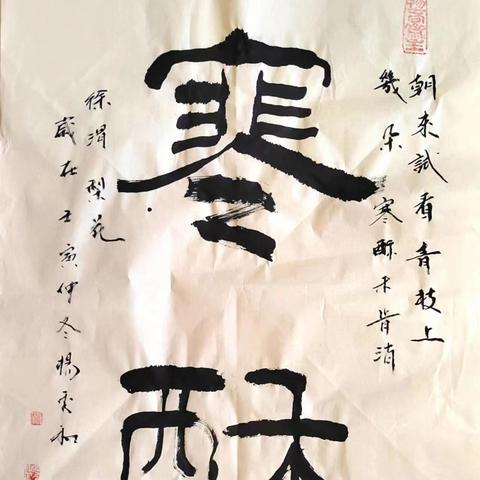 朝来試看青枝上
幾朵寒酥未肯消
寒酥
徐渭梨花
歲在壬寅仲冬楊和